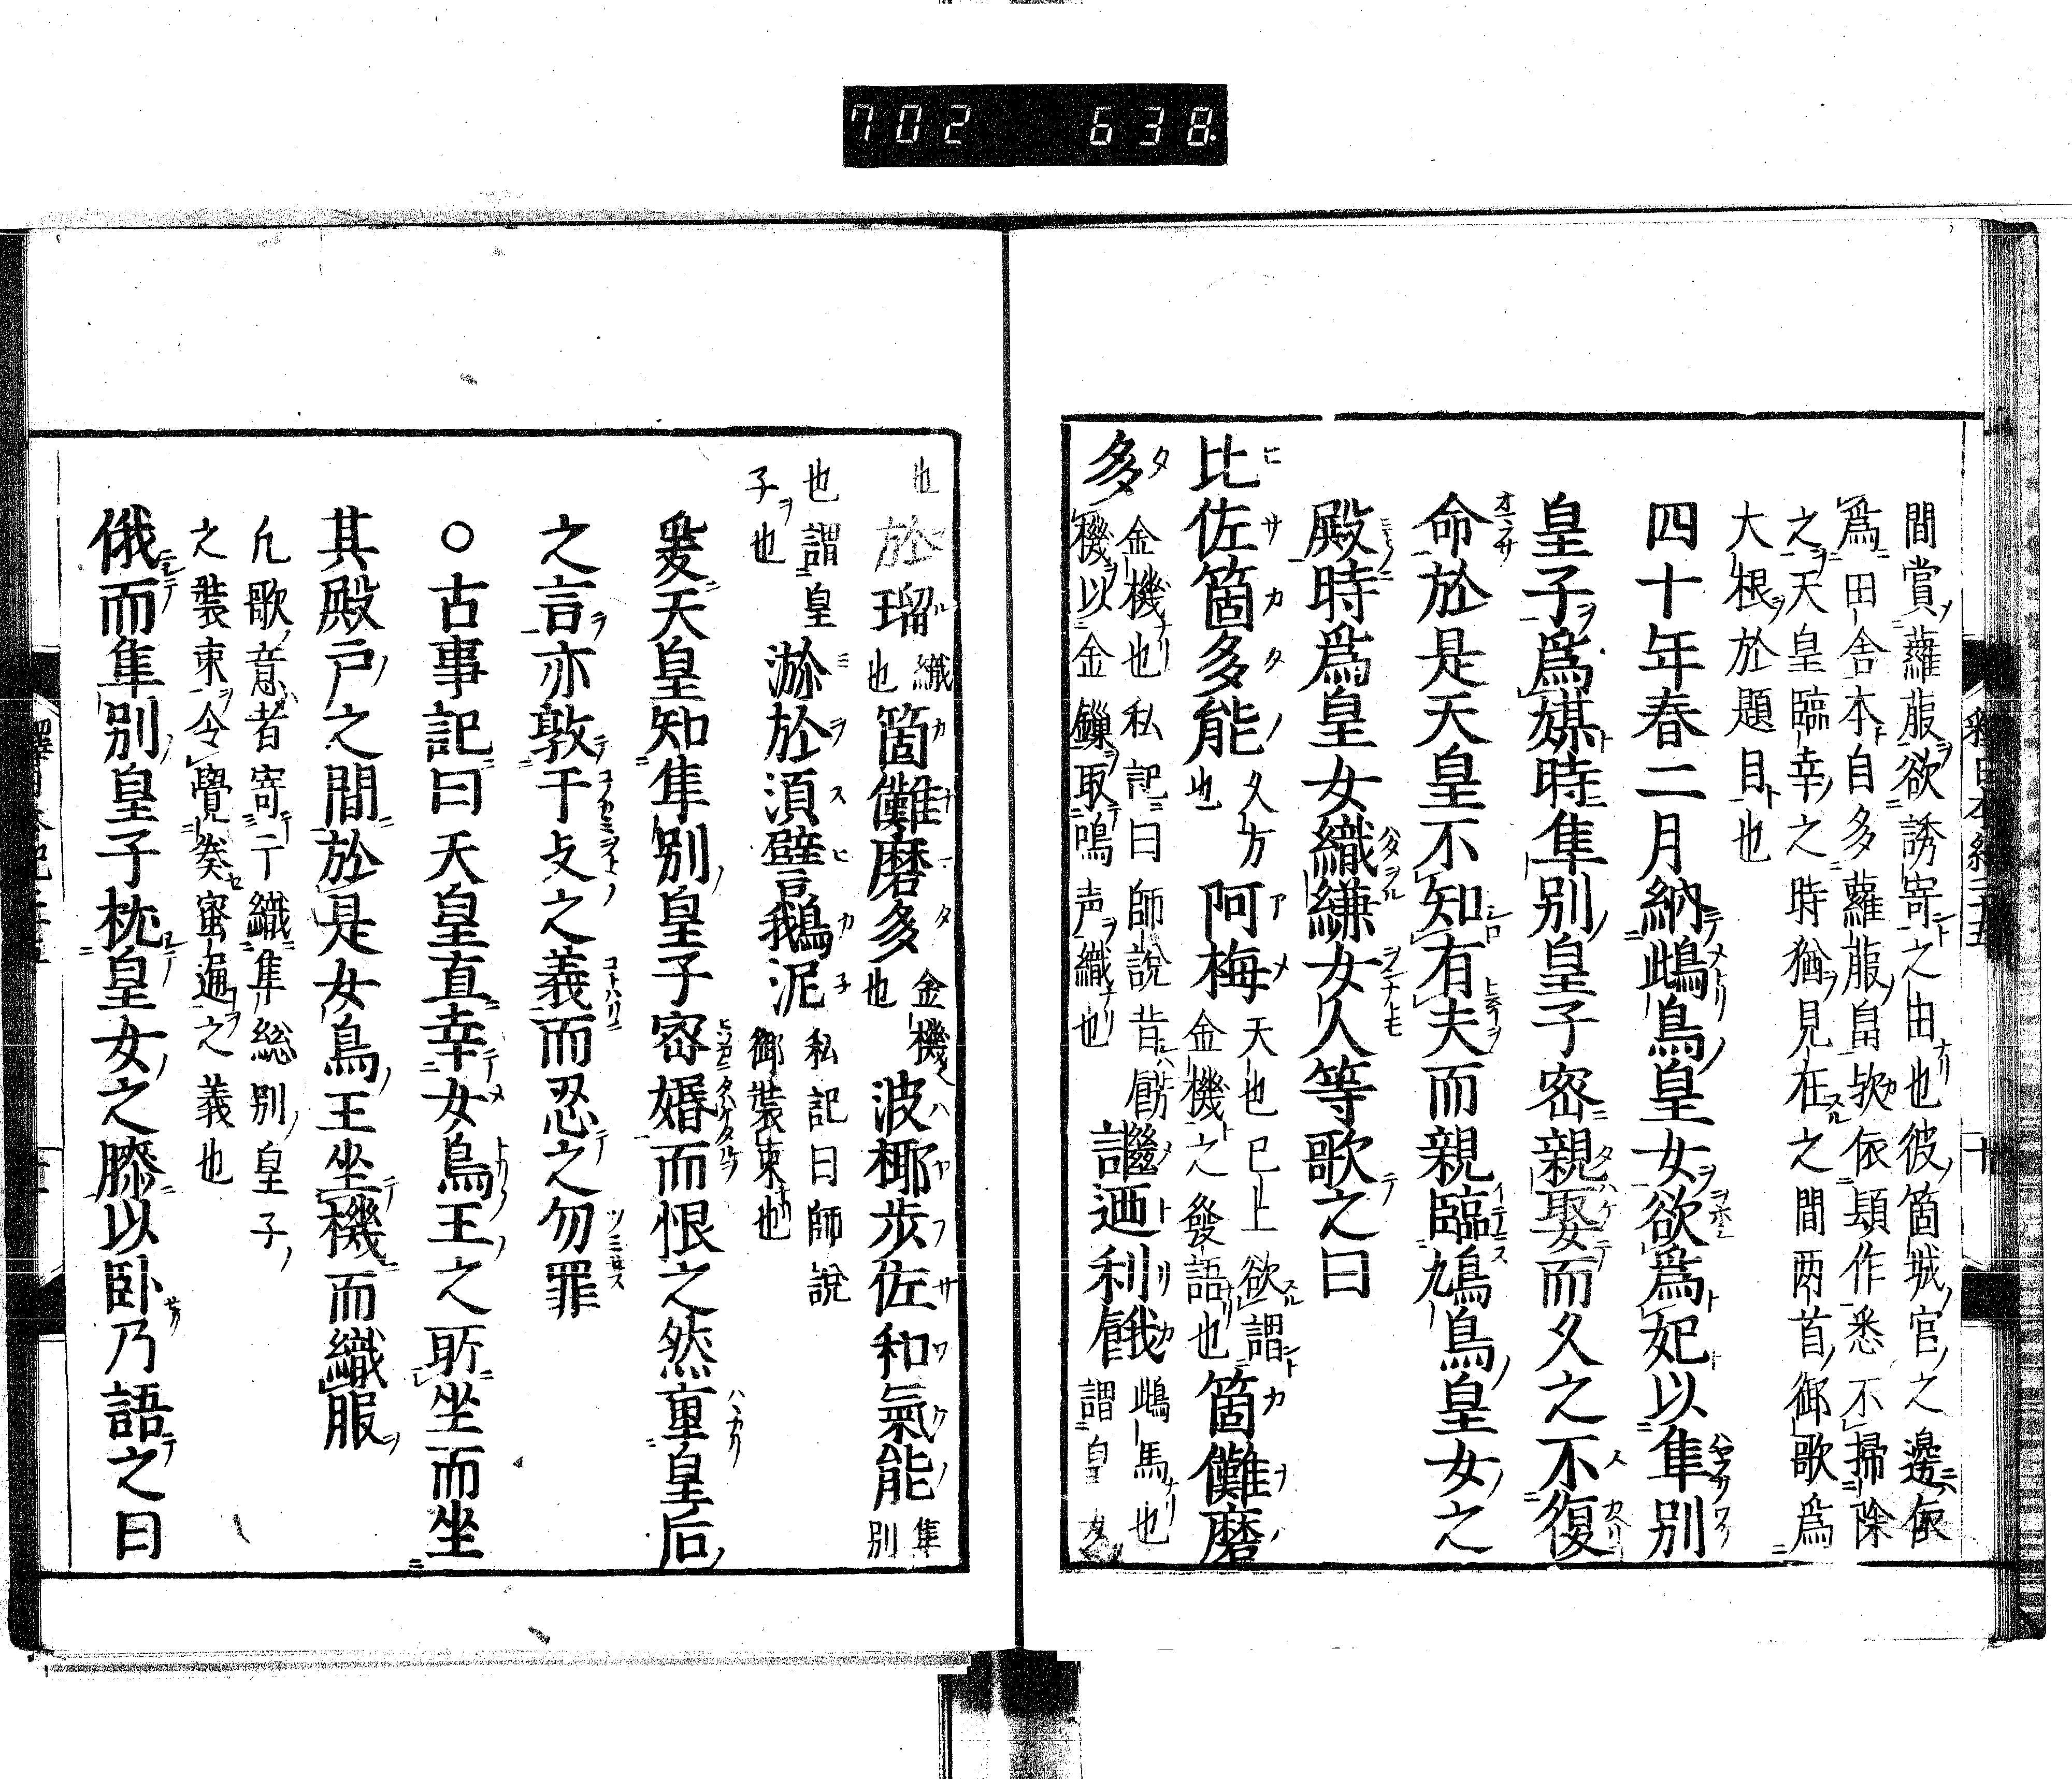 702 638
間賞蘿菔欲誘寄之由也彼箇城宮之邊依
為田舎本自多蘿菔畠歟依顕作悉不掃除
之天皇臨幸之時猶見在之間両首御歌為
大根於題目也
四十年春二月納雌鳥皇女欲為妃以隼別
皇子為媒時隼別皇子密親娶而久之不復
命於是天皇不知有夫而親臨雌鳥皇女之
殿時為皇女織縑女人等歌之曰
比佐箇多能
久方
也
阿梅
天也已上欲謂
金機之發語也
箇儺麼
多
金機也私記曰師説昔
機以金鏁取鳴声織也
謎廼利餓
雌鳥也
謂皇女
也
於瑠
織
也
箇儺麼多
金機
也
波椰歩佐和氣能
隼
別
也謂皇
子也
瀰於須譬鵝泥
私記曰師説
御装束也
爰天皇知隼別皇子密婚而恨之然重皇后
之言亦敦干支之義而忍之勿罪
○古事記曰天皇直幸女鳥王之所坐而坐
其殿戸之間於是女鳥王坐機而織服
凡歌意者寄于織隼総別皇子
之装束令覺発蜜通之義也
俄而隼別皇子枕皇女之膝以臥乃語之曰